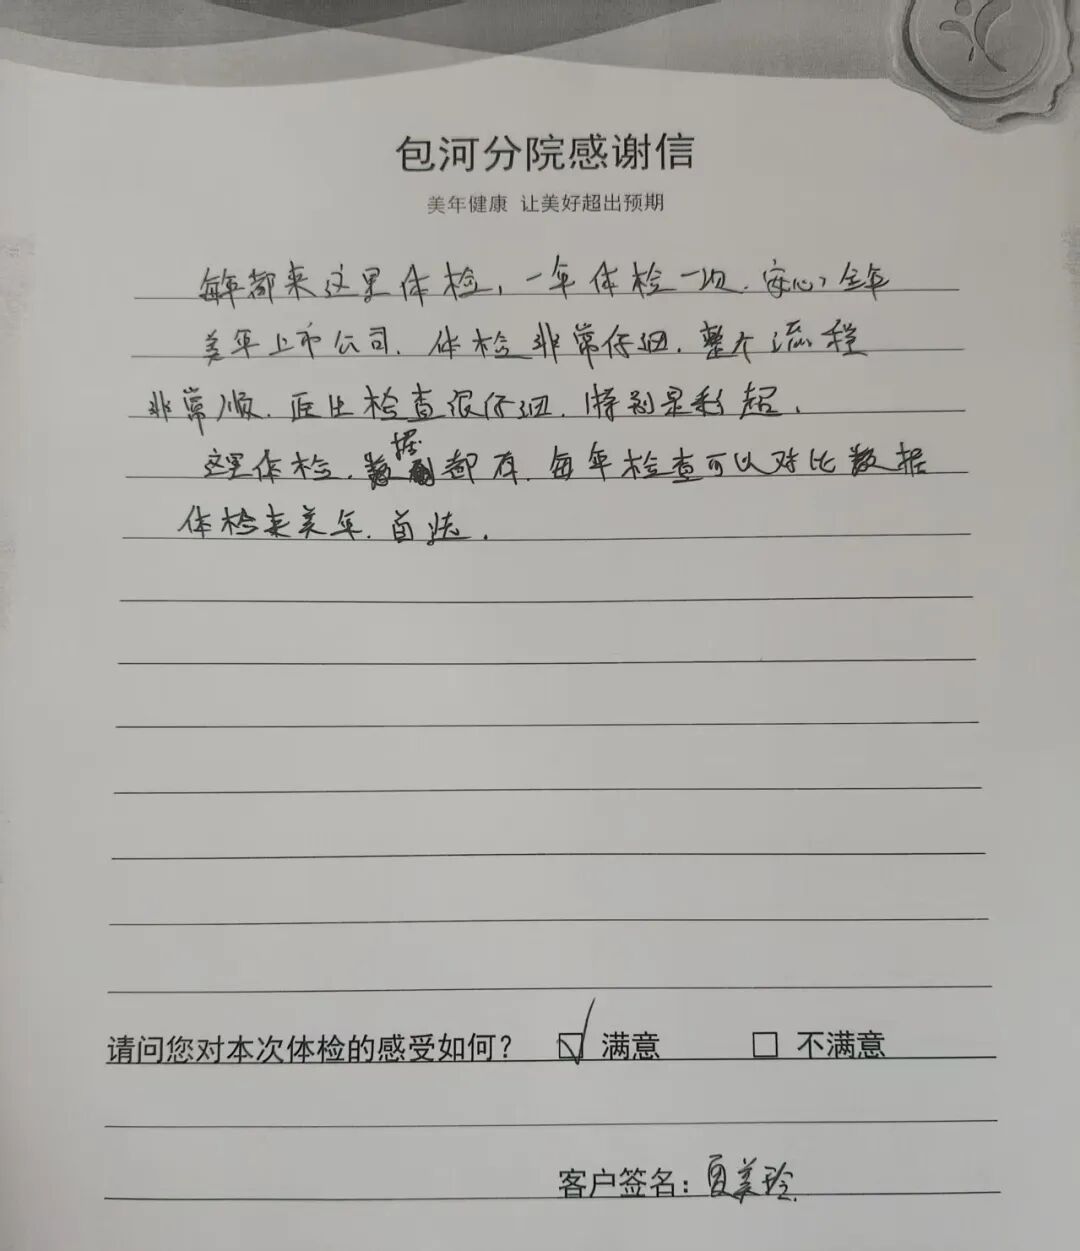 包河分院感谢信
美年健康 让美好超出预期
每年都来这里体检,一年体检一次.安心全年
美年上市公司.体检非常仔细.整个流程
非常顺.医生检查很仔细.特别是彩超.
这里体检.数据都存.每年检查可以对比数据
体检来美年.首选.
请问您对本次体检的感受如何? ☑ 满意 □ 不满意
客户签名:夏美玲